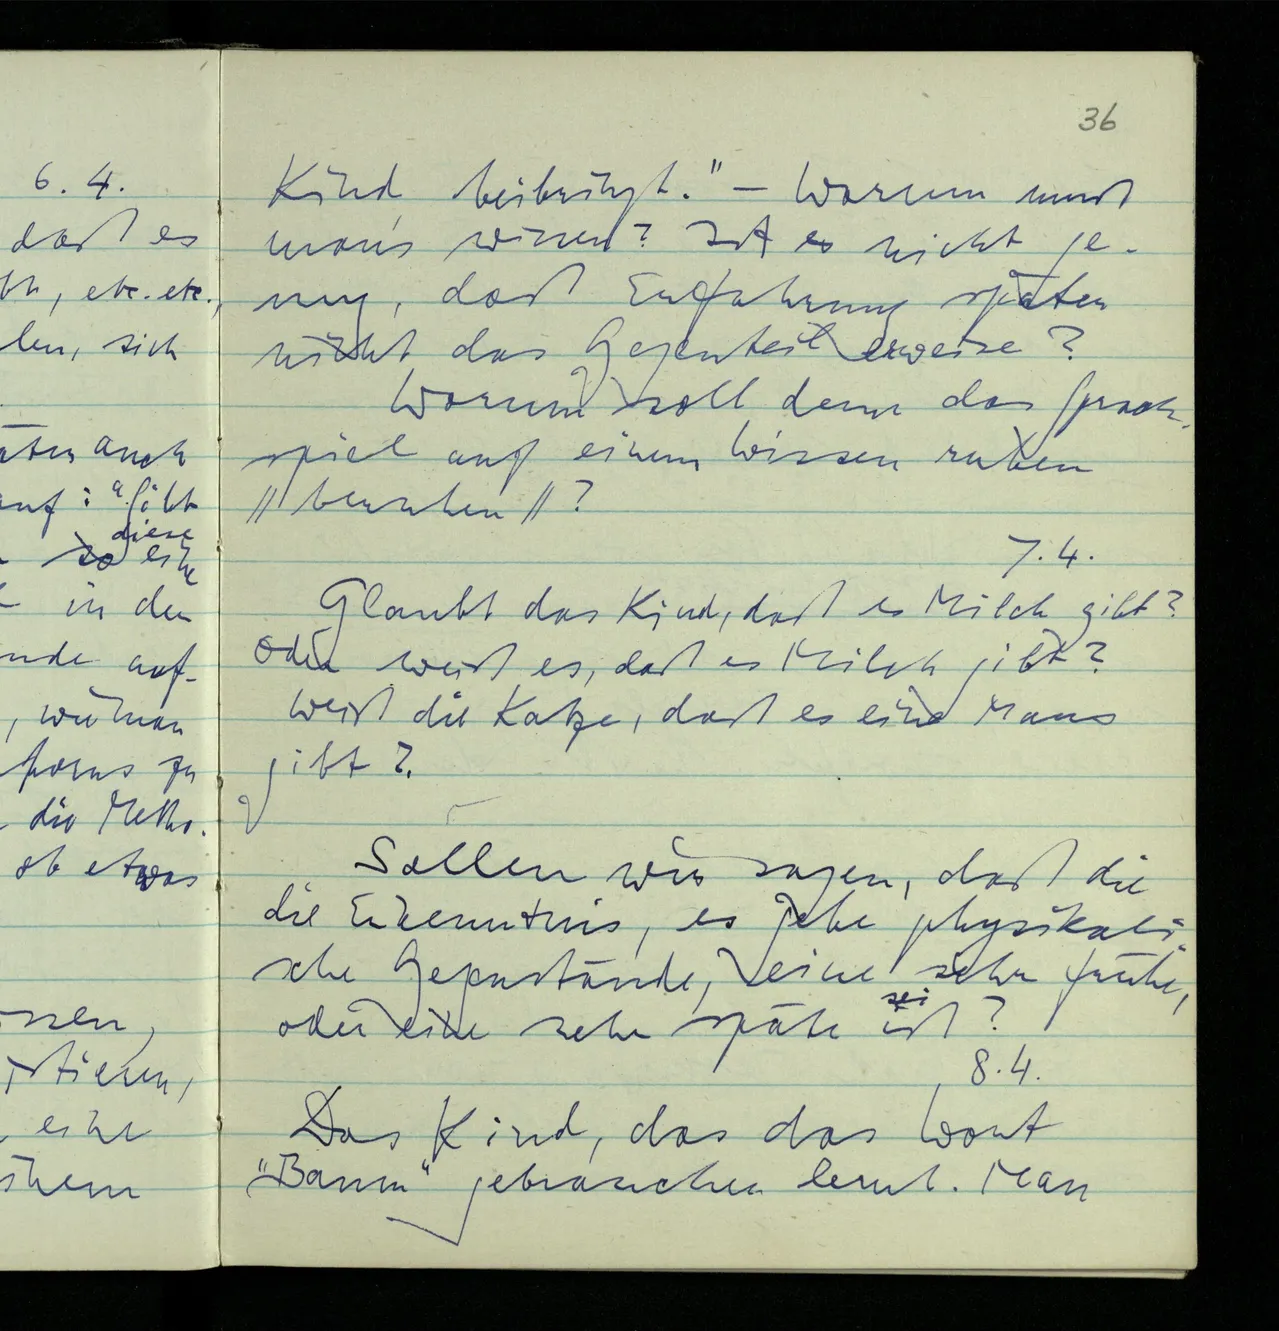 6. 4.
daß es
etc. etc.,
sich
auch
: "Gibt
diese
so eine
in der
auf-
, wie man
zu
die Metho-
ob etwas
eine
36
Kind beibringt." – Warum muß
man's wissen? Ist es nicht ge-
nug, daß Erfahrung später
nicht das Gegenteil erweise?
Warum soll denn das Sprach-
spiel auf einem Wissen ruhen
// beruhen //?
7. 4.
Glaubt das Kind, daß es Milch gibt?
oder weiß es, daß es Milch gibt?
Weiß die Katze, daß es eine Maus
gibt?
Sollen wir sagen, daß die
die Erkenntnis, es gebe physikali-
sche Gegenstände, eine sehr frühe,
sei
oder eine sehr späte ist?
8. 4.
Das Kind, das das Wort
"Baum" gebrauchen lernt. Man